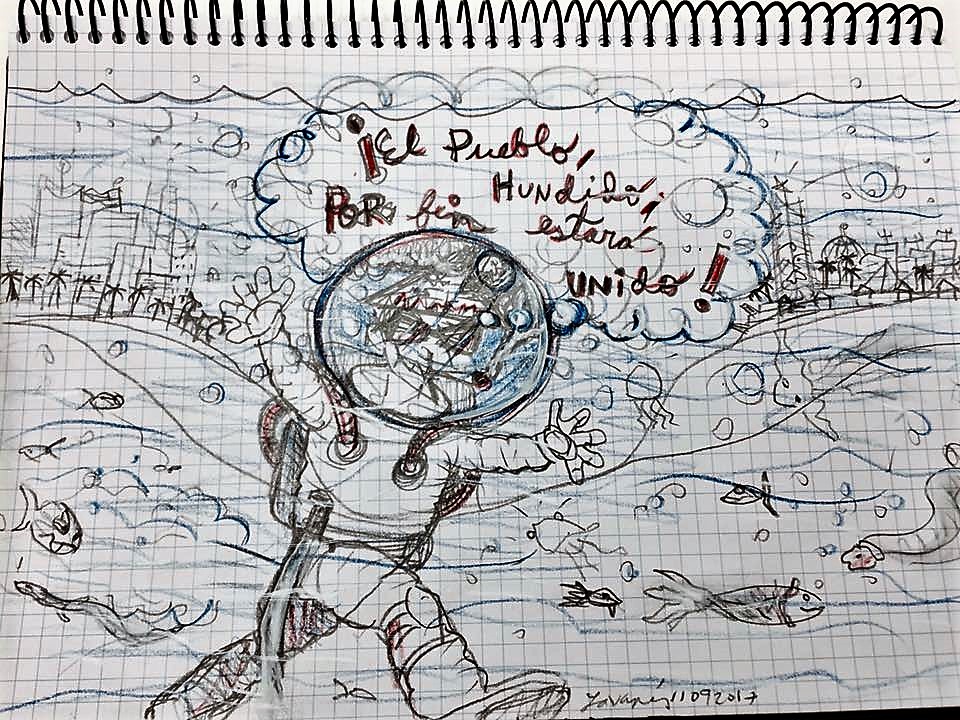 ¡El Pueblo,
Hundido,
POR fin estará
UNIDO!
Lavapiés 11092017